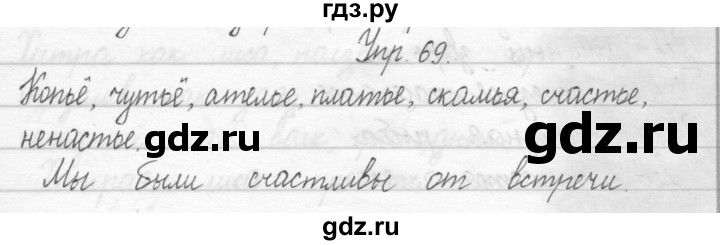 гдз.ру
Упр. 69.
Копьё, чутьё, ателье, платье, скамья, счастье,
ненастье.
gdz.ru gdz.ru
Мы были счастливы от встречи.
gdz.ru